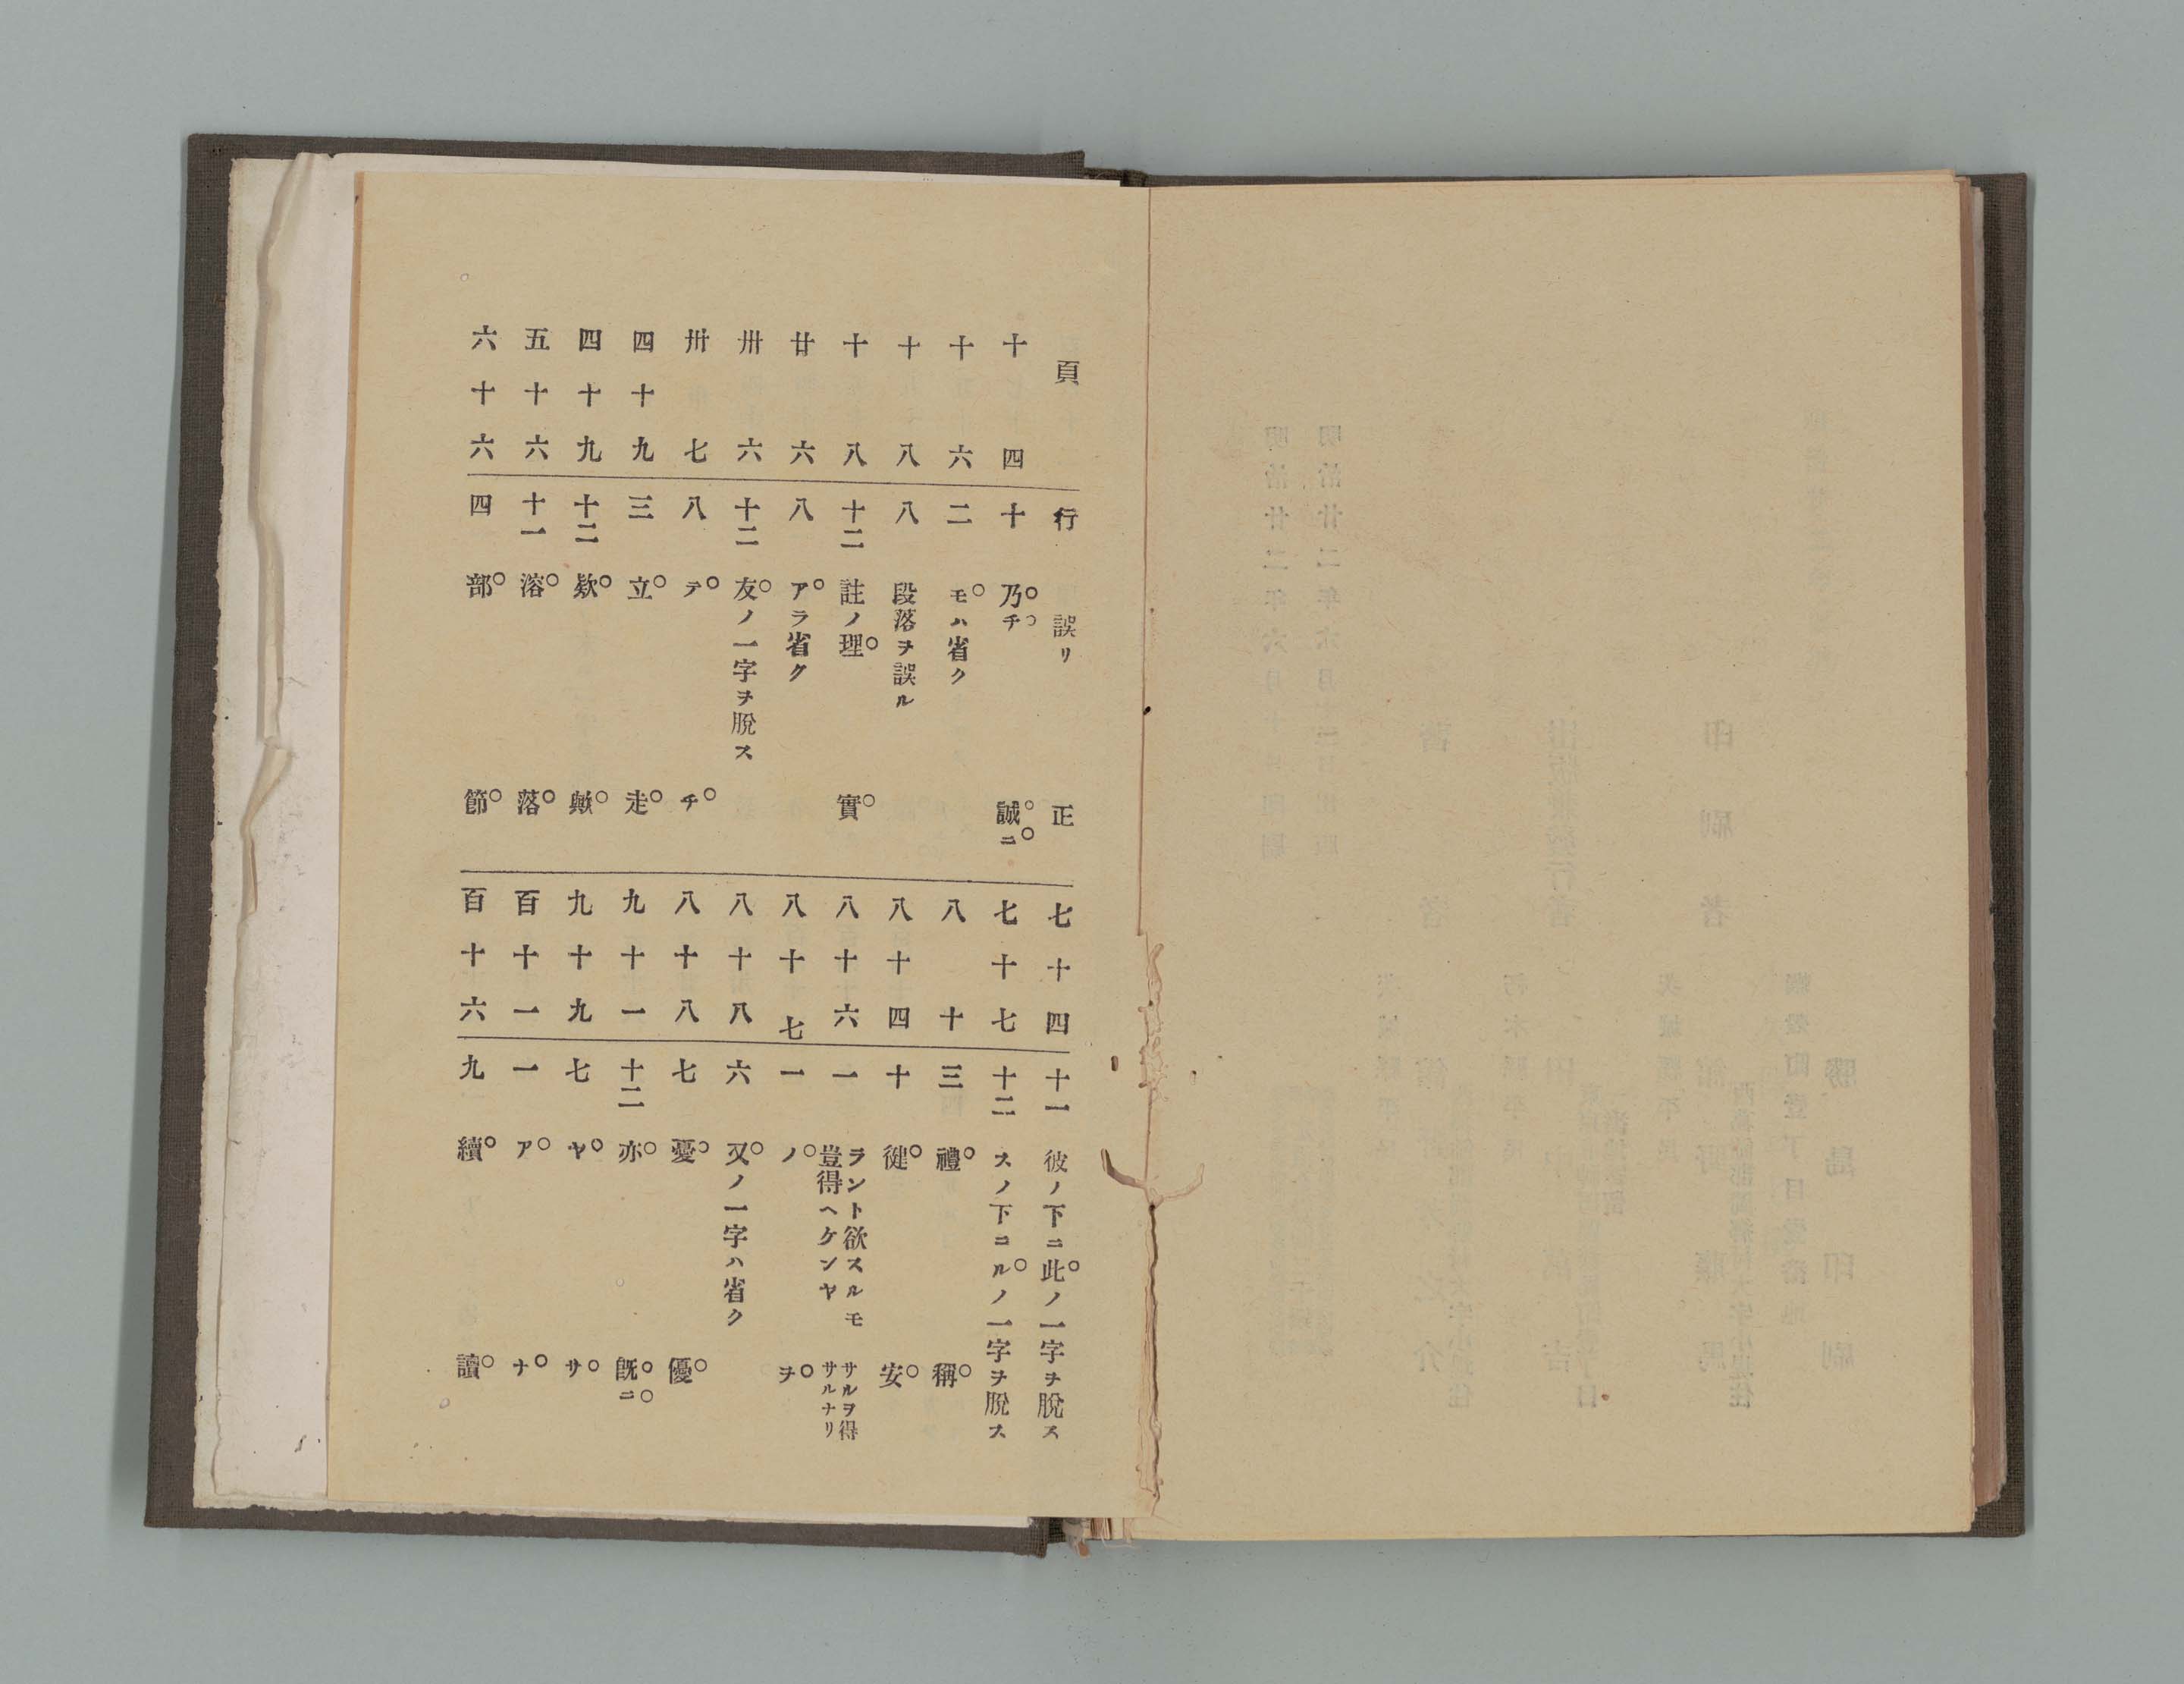 頁 行 誤リ 正
十四 十 乃チ 誠ニ
十六 二 モハ省ク
十八 八 段落ヲ誤ル
十八 十二 註ノ理 實
廿六 八 アラ省ク
卅六 十二 友ノ一字ヲ脫ス
卅七 八 テ チ
四十九 三 立 走
四十九 十二 欵 歟
五十六 十一 溶 落
六十六 四 部 節
七十四 十一 彼ノ下ニ此ノ一字ヲ脫ス
七十七 十二 スノ下コルノ一字ヲ脫ス
八十 三 禮 稱
八十四 十 徤 安
八十六 一 ラント欲スルモ豈得ヘケンヤ サルヲ得サルナリ
八十七 一 ノ ヲ
八十八 六 又ノ一字ハ省ク
八十八 七 憂 優
九十一 十二 亦 旣ニ
九十九 七 ヤ サ
百十一 一 ア ナ
百十六 九 續 讀